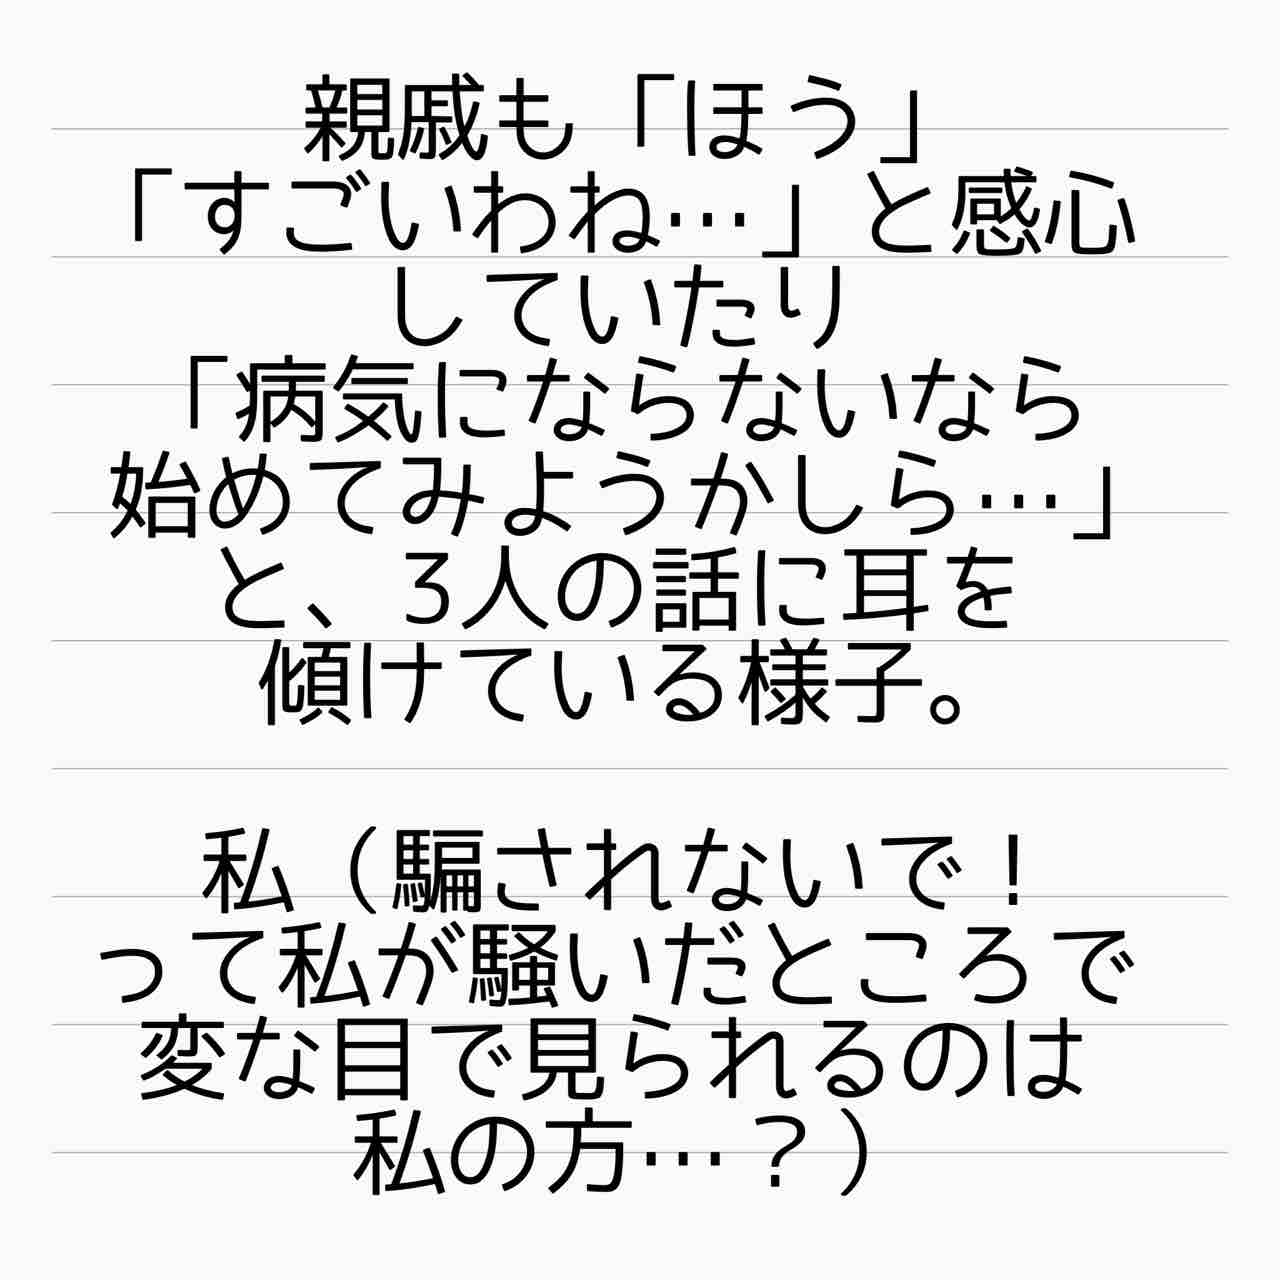 親戚も「ほう」
「すごいわね…」と感心
していたり
「病気にならないなら
始めてみようかしら…」
と、3人の話に耳を
傾けている様子。
私（騙されないで！
って私が騒いだところで
変な目で見られるのは
私の方…？）